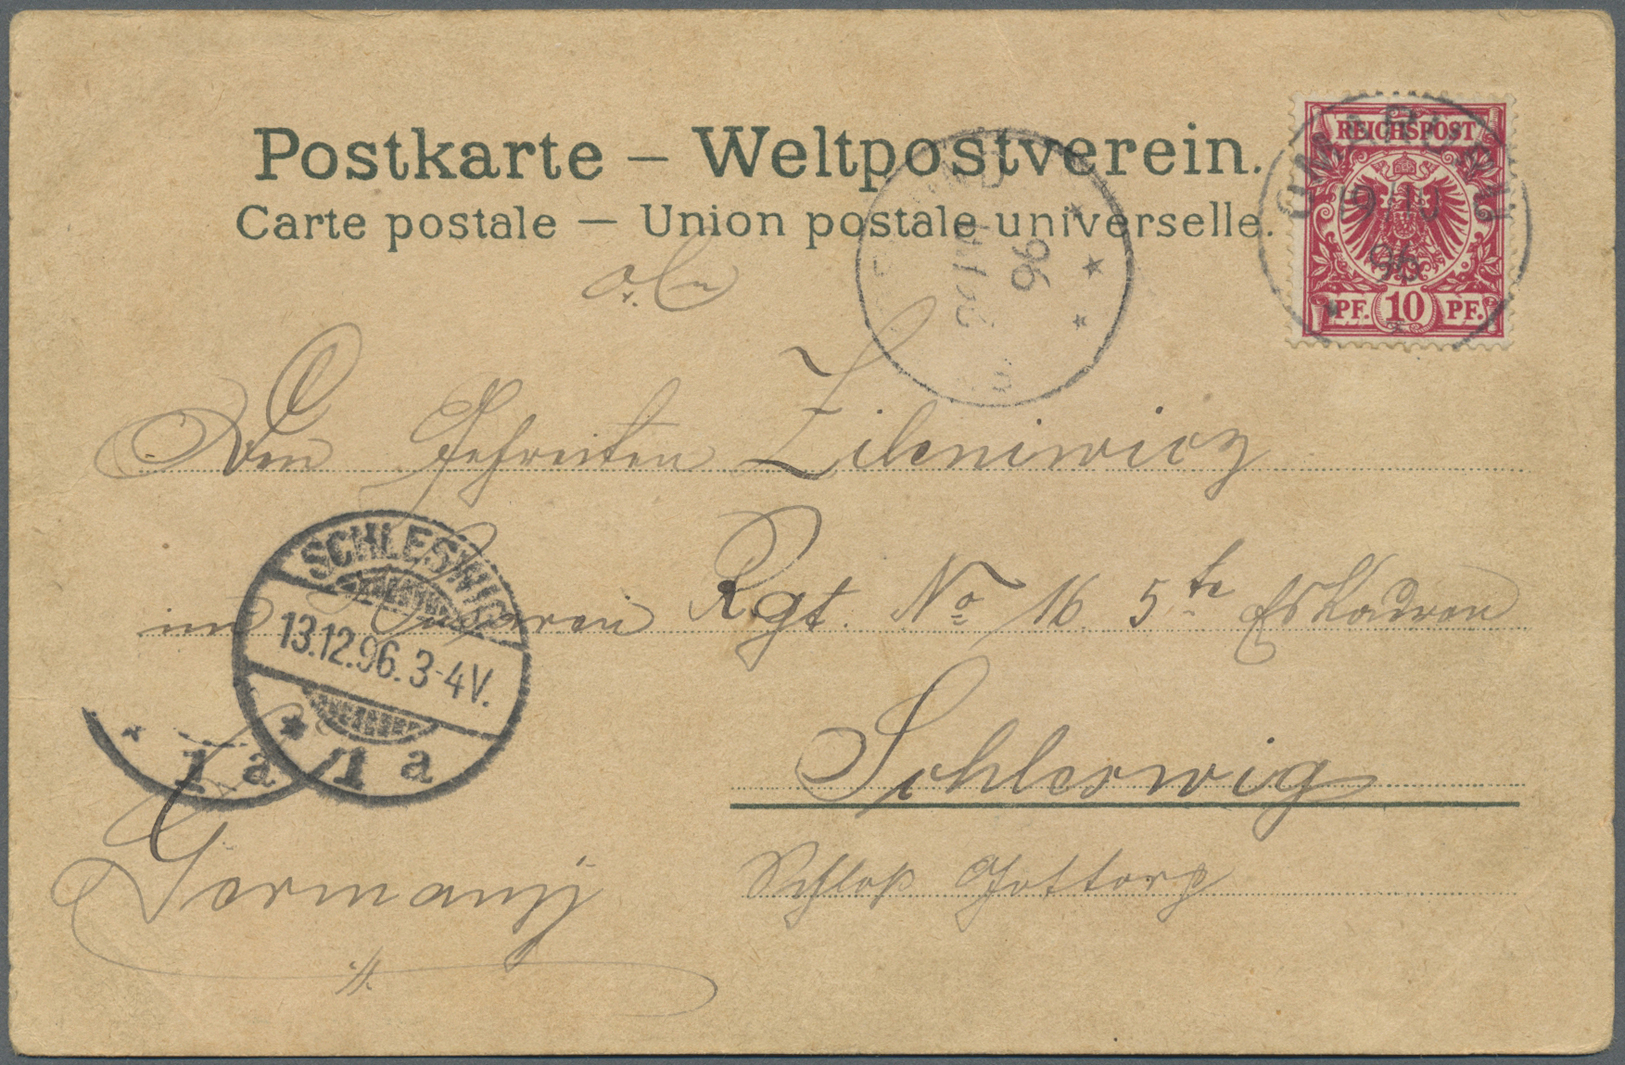 Postkarte – Weltpostverein.
Carte postale — Union postale universelle.
REICHSPOST
PF. 10 PF.
OMARURU
9/10
96
96
Den Gefreiten Zileniwicz
im Husaren Rgt. No 16 5te Eskadron
Schleswig
Schloß Gottorp
Germany
SCHLESWIG
13.12.96. 3-4V.
* 1 a
* 1 a